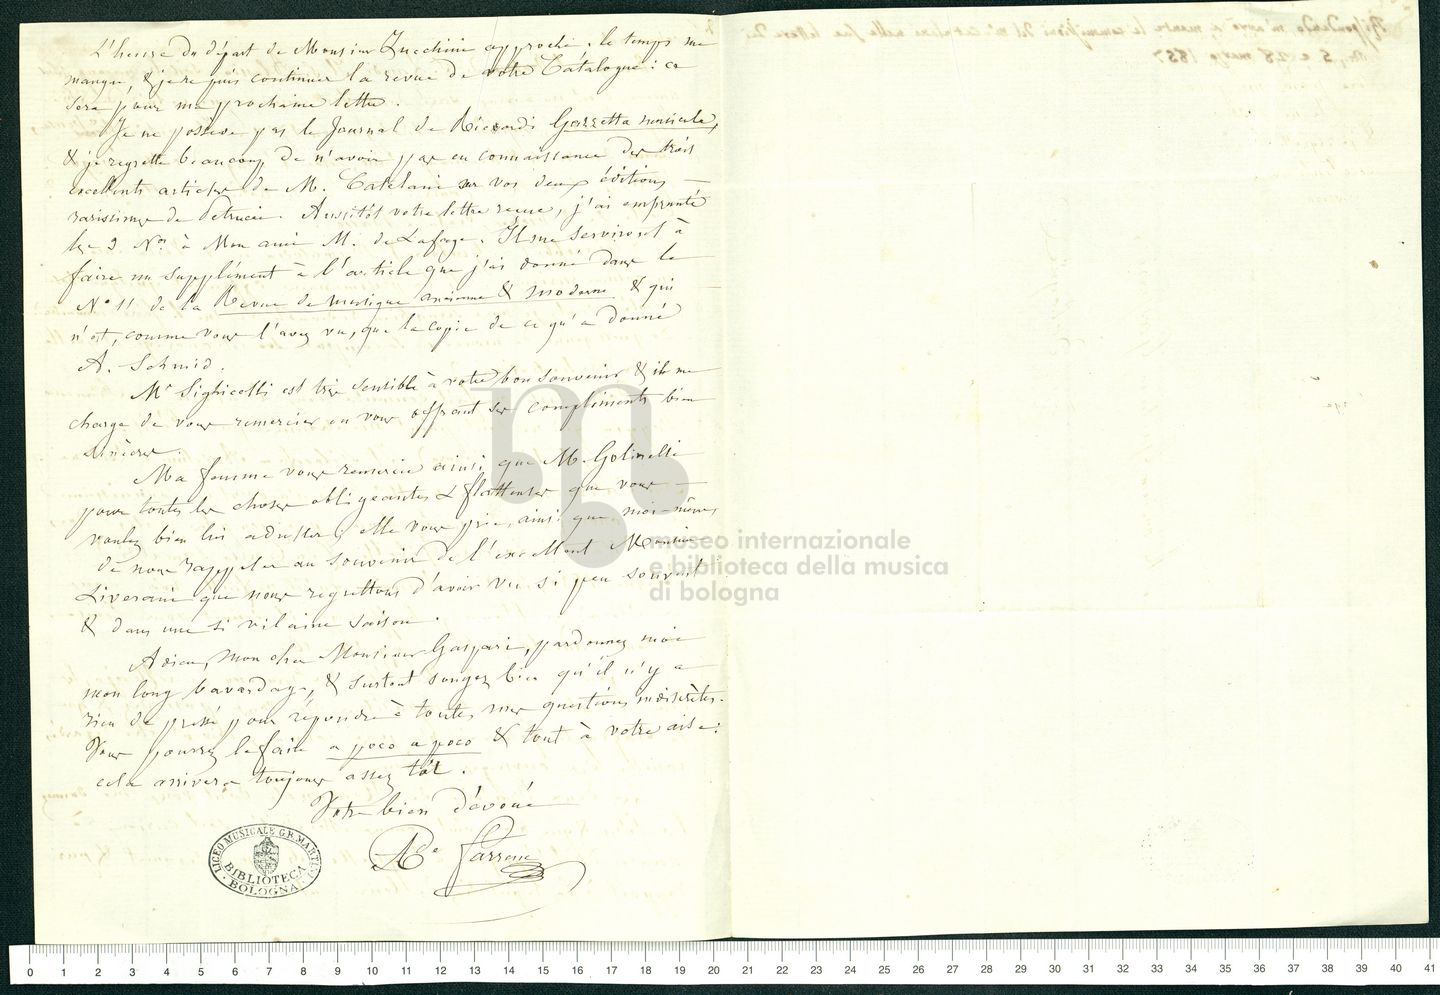 L'heure du départ de Monsieur Zucchini approche. le temps me
manque, & je ne puis continuer la revue de votre Catalogue : ce
sera pour ma prochaine lettre.
Je ne possède pas le Journal de Ricordi Gazzetta musicale,
& je regrette beaucoup de n'avoir pas eu connaissance des trois
excellents articles de M. Catelani sur vos deux éditions
rarissimes de Petrucci. Aussitôt votre lettre reçue, j'ai emprunté
les 3 Nos à Mon ami M. de Lafage. Ils me serviront à
faire un supplément à l'article que j'ai donné dans le
No 11 de la Revue de musique ancienne & moderne & qui
n'est, comme vous l'avez vu, que la copie de ce qu'a donné
A. Schmid.
Mr Sighicelli est très sensible à votre bon souvenir & il me
charge de vous remercier en vous offrant ses compliments bien
sincères.
Ma femme vous remercie ainsi que M. Golinelli
pour toutes les choses obligeantes & flatteuses que vous
voulez bien lui adresser; elle vous prie, ainsi que moi-même,
de nous rappeler au souvenir de l'excellent Monsieur
Liverani que nous regrettons d'avoir vu si peu souvent
& dans une si vilaine saison.
Adieu, mon cher Monsieur Gaspari, pardonnez moi
mon long bavardage, & surtout songez bien qu'il n'y a
rien de pressé pour répondre à toutes mes questions indiscrètes.
Vous pourrez le faire a poco a poco & tout à votre aise :
cela arrivera toujours assez tôt.
Votre bien dévoué
Ade Farrenc
LICEO MUSICALE G.B. MARTINI
BIBLIOTECA
BOLOGNA
museo internazionale
e biblioteca della musica
di bologna
0 1 2 3 4 5 6 7 8 9 10 11 12 13 14 15 16 17 18 19 20 21 22 23 24 25 26 27 28 29 30 31 32 33 34 35 36 37 38 39 40 41